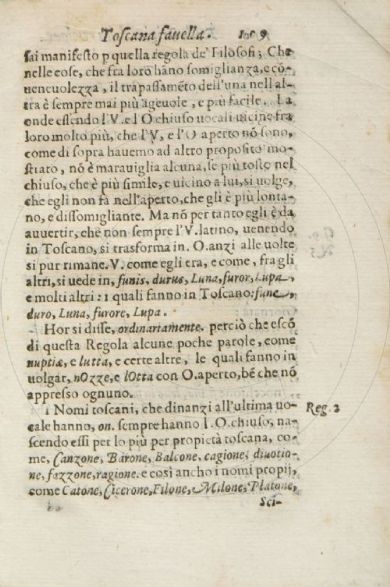 Toscana fauella. 109
sai manifesto p quella regola de' Filosofi; Che
nelle cose, che fra loro hãno somiglianza, e cõ-
ueneuolezza, il trapassamẽto dell'una nell'al-
tra è sempre mai più ageuole, e più facile. La
onde essendo l'V. e l O chiuso uocali uicine fra
loro molto più, che l'V, e l'O aperto nõ sono,
come di sopra hauemo ad altro proposito mo-
strato, nõ è marauiglia alcuna, se più tosto nel
chiuso, che è più simile, e uicino a lui, si uolge,
che egli non fà nell'aperto, che gli è più lonta-
no, e dissomigliante. Ma nõ per tanto egli è da
auuertir, che non sempre l'V. latino, uenendo
in Toscano, si trasforma in O. anzi alle uolte
si pur rimane. V. come egli era, e come, fra gli
altri, si uede in, funis, durus, Luna, furor, Lupa
e molti altri: i quali fanno in Toscano: fune,
duro, Luna, furore, Lupa.
Hor si disse, ordinariamente. perciò che escõ
di questa Regola alcune poche parole, come
nuptiæ, e lutta, e certe altre, le quali fanno in
uolgar, nOzze, e lOtta con O. aperto, bẽ che nõ
appresso ognuno.
i Nomi toscani, che dinanzi all'ultima uo- Reg. 2
cale hanno, on. sempre hanno l. O. chiuso, na-
scendo essi per lo più per propietà toscana, co-
me, Canzone, Barone, Balcone, cagione, diuotio-
ne, fazzone, ragione. e così ancho i nomi propij,
come Catone, Cicerone, Filone, Milone, Platone,
Sci-